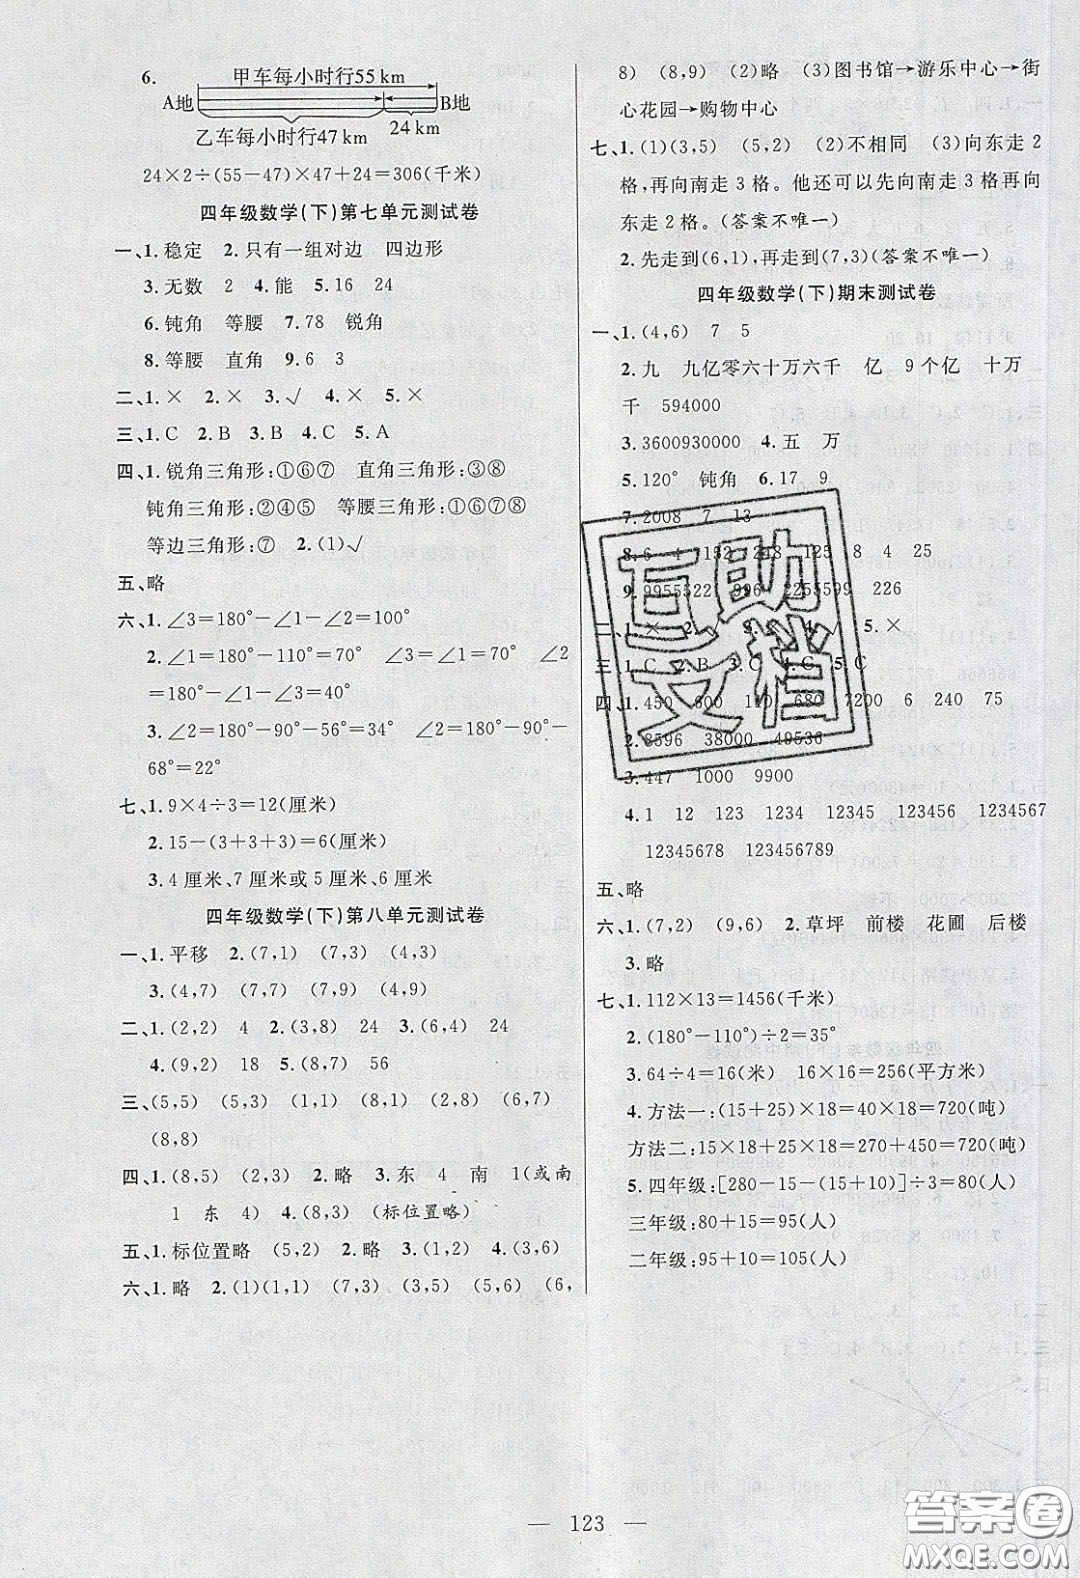 6.
甲车每小时行55 km
A地
B地
乙车每小时行47 km
24 km
24×2÷(55－47)×47＋24＝306(千米)
四年级数学(下)第七单元测试卷
一、1.稳定 2.只有一组对边 四边形
3.无数 2 4.能 5.16 24
6.钝角 等腰 7.78 锐角
8.等腰 直角 9.6 3
二、1.× 2.× 3.√ 4.× 5.×
三、1.C 2.B 3.B 4.C 5.A
四、1.锐角三角形:①⑥⑦ 直角三角形:③⑧
钝角三角形:②④⑤ 等腰三角形:①⑥⑦⑧
等边三角形:⑦ 2.(1)√
五、略
六、1.∠3＝180°－∠1－∠2＝100°
2.∠1＝180°－110°＝70° ∠3＝70° ∠2
＝180°－∠1－70°＝40°
3.∠2＝180°－90°－56°＝34° ∠2＝180°－90°－
68°＝22°
七、1.9×4÷3＝12(厘米)
2.15－(3＋3＋3)＝6(厘米)
3.4厘米、7厘米或5厘米、6厘米
四年级数学(下)第八单元测试卷
一、1.平移 2.(7,1) (7,3) (4,3)
3.(4,7) (7,7) (7,9) (4,9)
二、1.(2,2) 4 2.(3,8) 24 3.(6,6) 24
4.(9,2) 18 5.(8,7) 56
三、(5,5) (5,3) (1,1) (8,1) (2,8) (6,7)
(8,8)
四、1.(8,5) (2,3) 2.略 3.东 4 南 1(或南
1 东 4) 4.(8,3) (标位置略)
五、1.标位置略 (5,2) 2.略 3.(1,2) 4.(3,6)
六、1.略 2.(1)(1,1) (7,3) (3,4) (5,6) (6,
8) (8,9) (2)略 (3)图书馆→游乐中心→街
心花园→购物中心
七、1.(1)(3,5) (5,2) (2)不相同 (3)向东走2
格,再向南走3格。他还可以先向南走3格再向
东走2格。(答案不唯一)
2.先走到(6,1),再走到(7,3)(答案不唯一)
四年级数学(下)期末测试卷
一、1.(4,6) 7 5
2.九 九亿零六十万六千 亿 9个亿 十万
千 594000
3.3600930000 4.五 万
5.120° 钝角 6.17 9
7.2008 7 13
8.6 4 152 248 125 8 4 25
9.9955522 996 2255599 226
二、1.× 2.√ 4.√ 5.×
三、1.C 2.B 3.C 4.C 5.C
四、1.450 600 110 680 7200 6 240 75
2.8596 38000 49536
3.447 1000 9900
4.1 12 123 1234 12345 123456 1234567
12345678 123456789
五、略
六、1.(7,2) (9,6) 2.草坪 前楼 花圃 后楼
3.略
七、1.112×13＝1456(千米)
2.(180°－110°)÷2＝35°
3.64÷4＝16(米) 16×16＝256(平方米)
4.方法一:(15＋25)×18＝40×18＝720(吨)
方法二:15×18＋25×18＝270＋450＝720(吨)
5.四年级:[280－15－(15＋10)]÷3＝80(人)
三年级:80＋15＝95(人)
二年级:95＋10＝105(人)
互助文档
— 123 —
答案圈
MXQE.COM